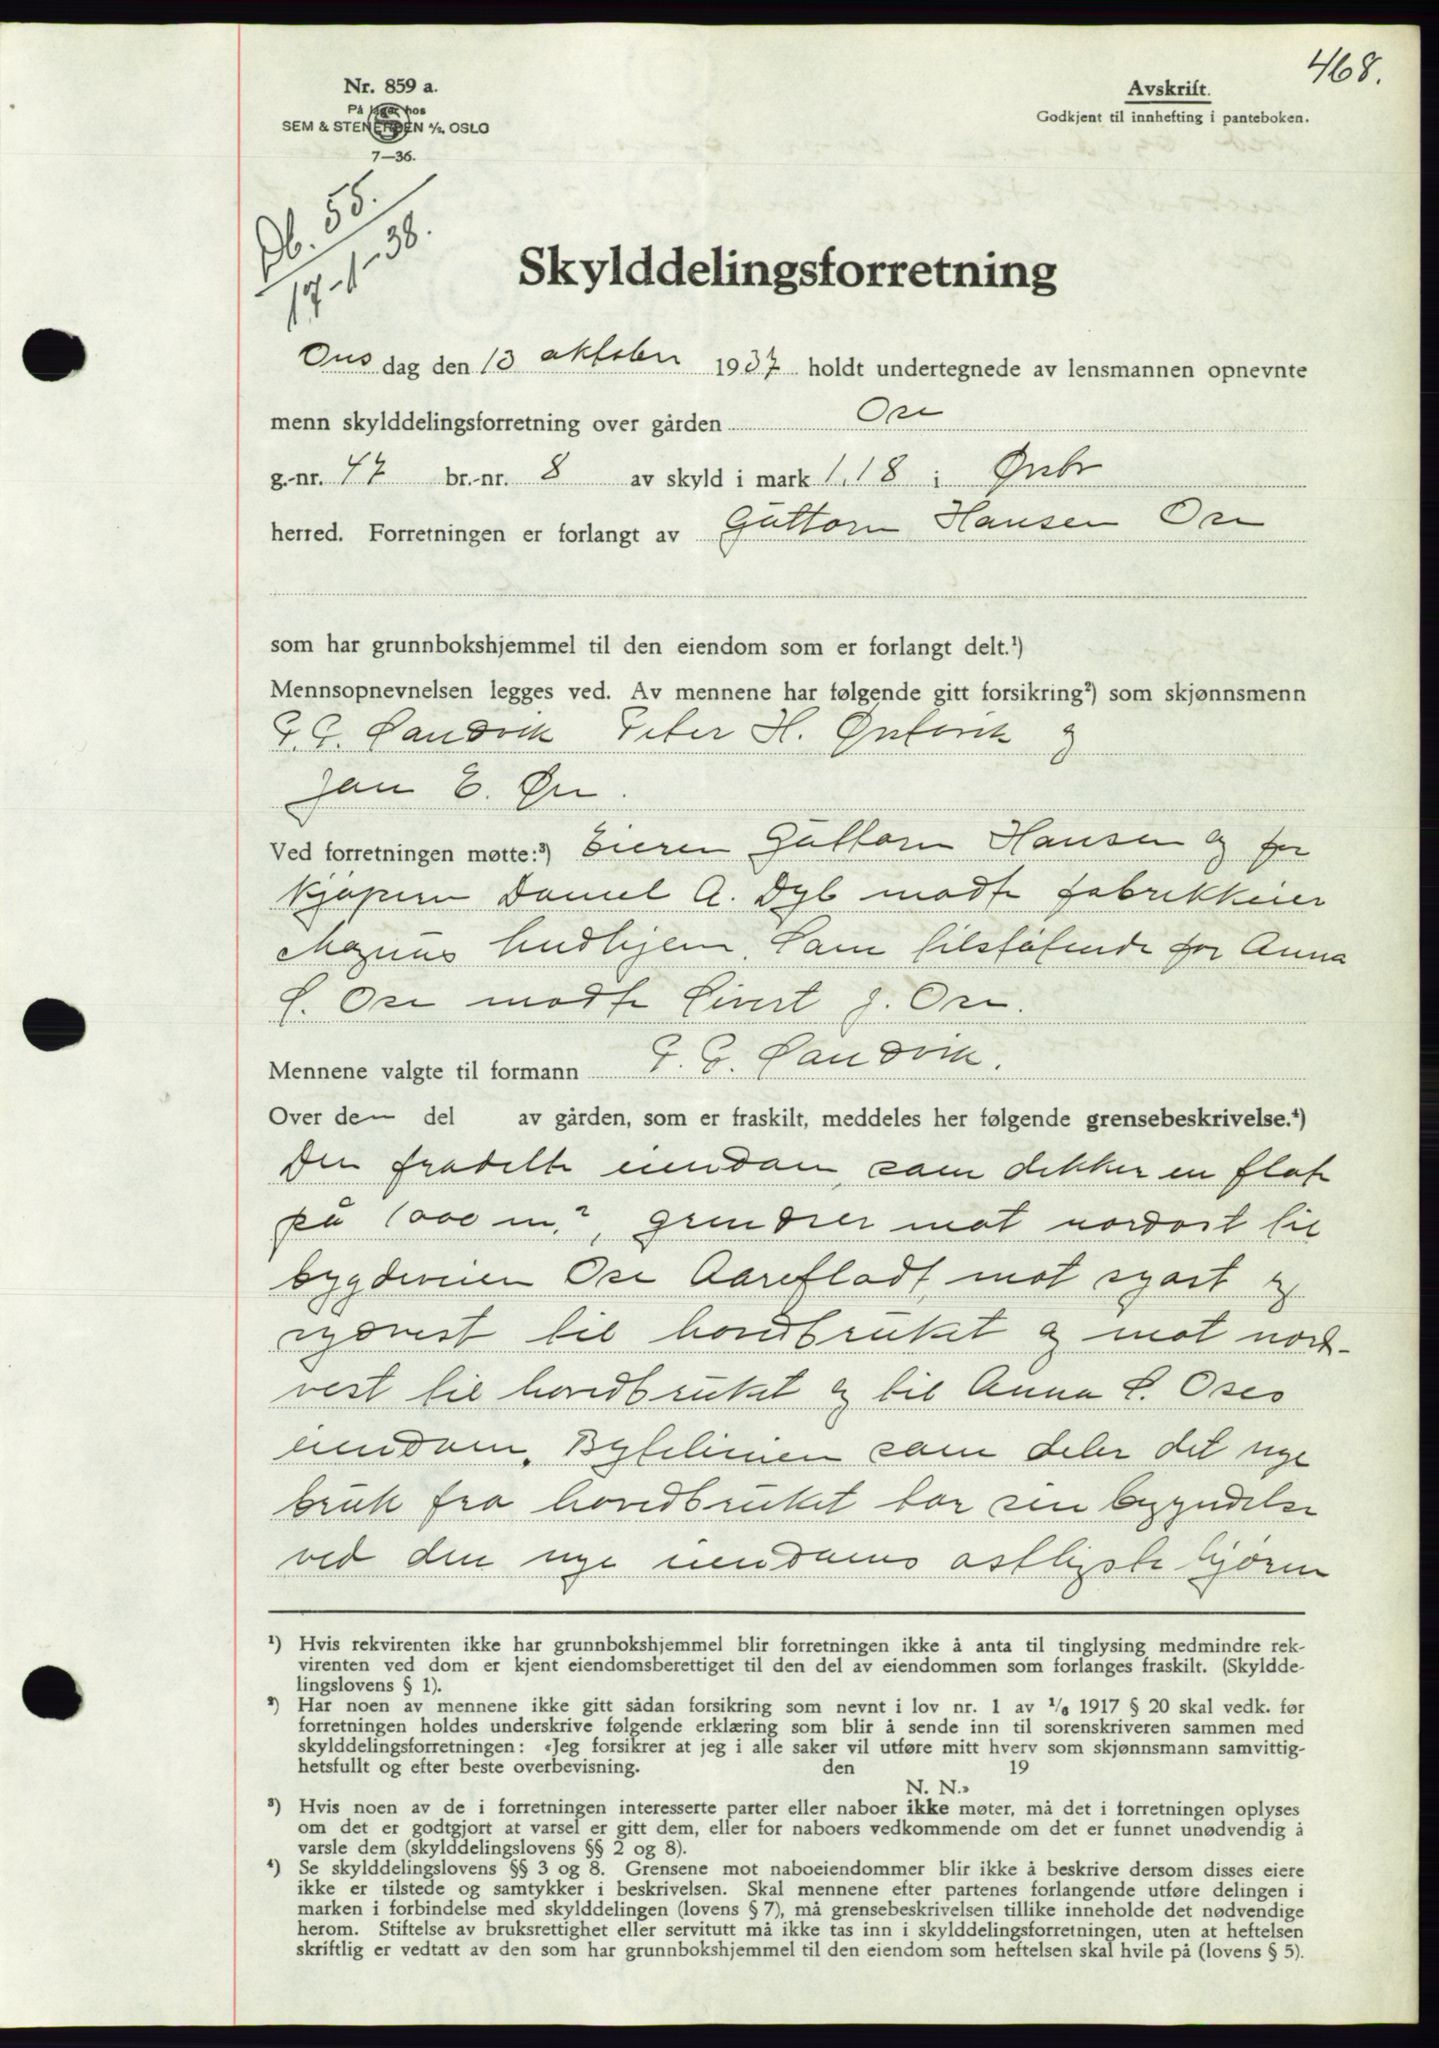 468.
Nr. 859 a.
På lager hos
SEM & STENERSEN A/S, OSLO
7—36.
Avskrift.
Godkjent til innhefting i panteboken.
Db. 55.
17-1-38.
Skylddelingsforretning
Ons dag den 13 oktober 1937 holdt undertegnede av lensmannen opnevnte
menn skylddelingsforretning over gården Ose
g.-nr. 47 br.-nr. 8 av skyld i mark 1,18 i Ørsta
herred. Forretningen er forlangt av Guttorm Hansen Ose
som har grunnbokshjemmel til den eiendom som er forlangt delt.¹)
Mennsopnevnelsen legges ved. Av mennene har følgende gitt forsikring²) som skjønnsmenn
Sandvik Peter H. Ørstavik og
Jan E. Øye.
Ved forretningen møtte:³) Eieren Guttorm Hansen og for
kjøperen Daniel A. Dyb møtte fabrikkeier
Magnus Indhjem. Som tilstøtende for Anna
S. Ose møtte Sivert J. Ose.
Mennene valgte til formann Sandvik.
Over den del av gården, som er fraskilt, meddeles her følgende grensebeskrivelse.⁴)
Den fradelte eiendom, som dekker en flate
på 1000 m², grendser mot nordost til
bygdeveien Ose Aarefladt, mot syøst og
sydvest til hovedbruket og mot nord-
vest til hovedbruket og til Anna S. Oses
eiendom. Bytelinien som deler det nye
bruk fra hovedbruket tar sin begyndelse
ved den nye eiendoms østligste hjørne
¹) Hvis rekvirenten ikke har grunnbokshjemmel blir forretningen ikke å anta til tinglysing medmindre rek-
virenten ved dom er kjent eiendomsberettiget til den del av eiendommen som forlanges fraskilt. (Skyldde-
lingslovens § 1).
²) Har noen av mennene ikke gitt sådan forsikring som nevnt i lov nr. 1 av 1/6 1917 § 20 skal vedk. før
forretningen holdes underskrive følgende erklæring som blir å sende inn til sorenskriveren sammen med
skylddelingsforretningen: «Jeg forsikrer at jeg i alle saker vil utføre mitt hverv som skjønnsmann samvittig-
hetsfullt og efter beste overbevisning. den 19
N. N.»
³) Hvis noen av de i forretningen interesserte parter eller naboer ikke møter, må det i forretningen oplyses
om det er godtgjort at varsel er gitt dem, eller for naboers vedkommende om det er funnet unødvendig å
varsle dem (skylddelingslovens §§ 2 og 8).
⁴) Se skylddelingslovens §§ 3 og 8. Grensene mot naboeiendommer blir ikke å beskrive dersom disses eiere
ikke er tilstede og samtykker i beskrivelsen. Skal mennene efter partenes forlangende utføre delingen i
marken i forbindelse med skylddelingen (lovens § 7), må grensebeskrivelsen tillike inneholde det nødvendige
herom. Stiftelse av bruksrettighet eller servitutt må ikke tas inn i skylddelingsforretningen, uten at heftelsen
skriftlig er vedtatt av den som har grunnbokshjemmel til den eiendom som heftelsen skal hvile på (lovens § 5).